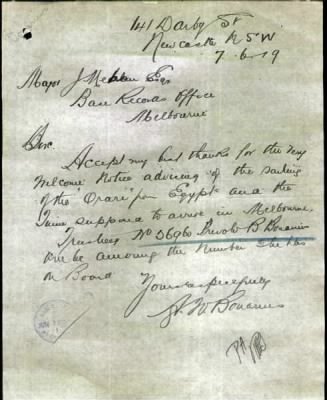 141 Darby St
Newcastle N S W
7. 6. 19
Major J McLean Esq
Base Records Office
Melbourne
Sir.
Accept my best thanks for the very
welcome notice advising of the sailing
of the "Orari" from Egypt and the
time supposed to arrive in Melbourne,
Trusting No 5696 Private B
will be among the Number she has
on Board
Yours respectfully